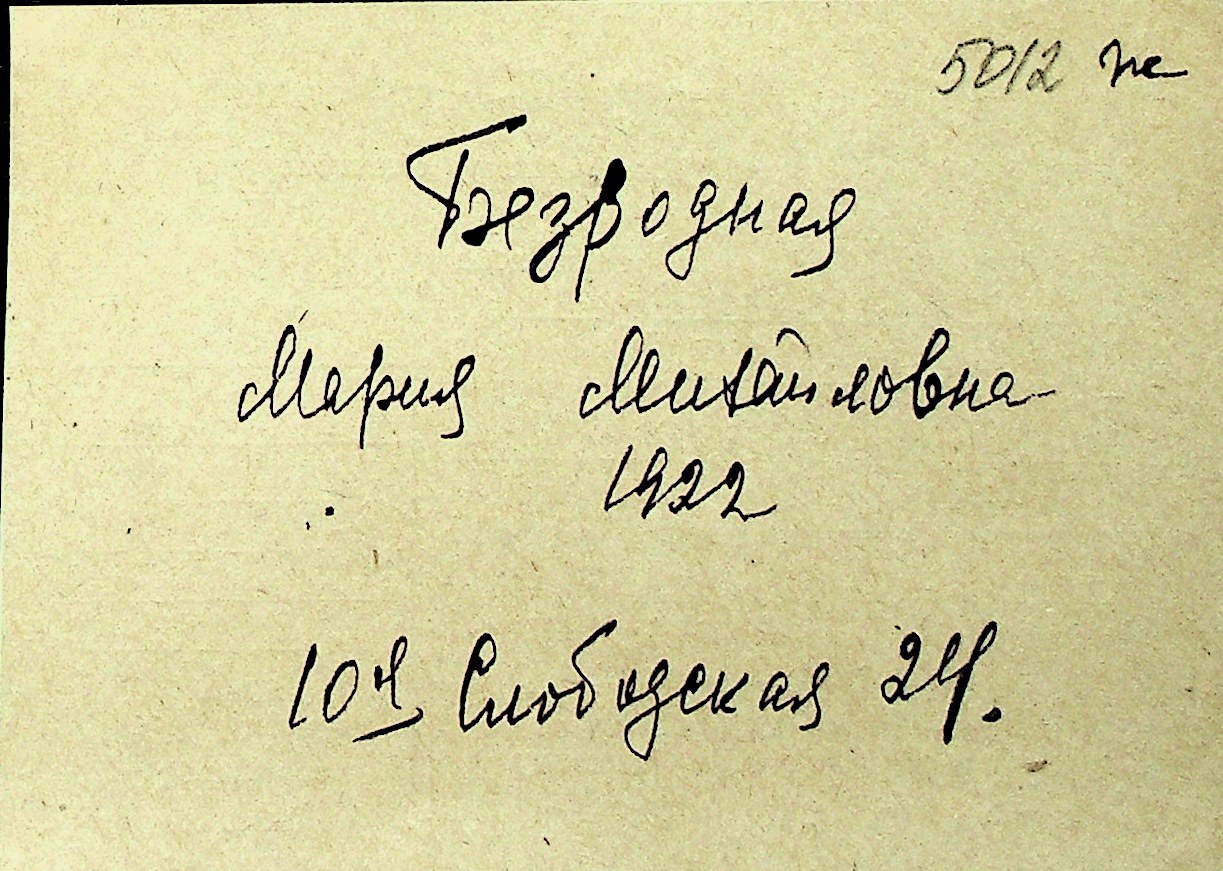 5012 же
Безродная
Мария Михайловна
1922
10я Слободская 24.